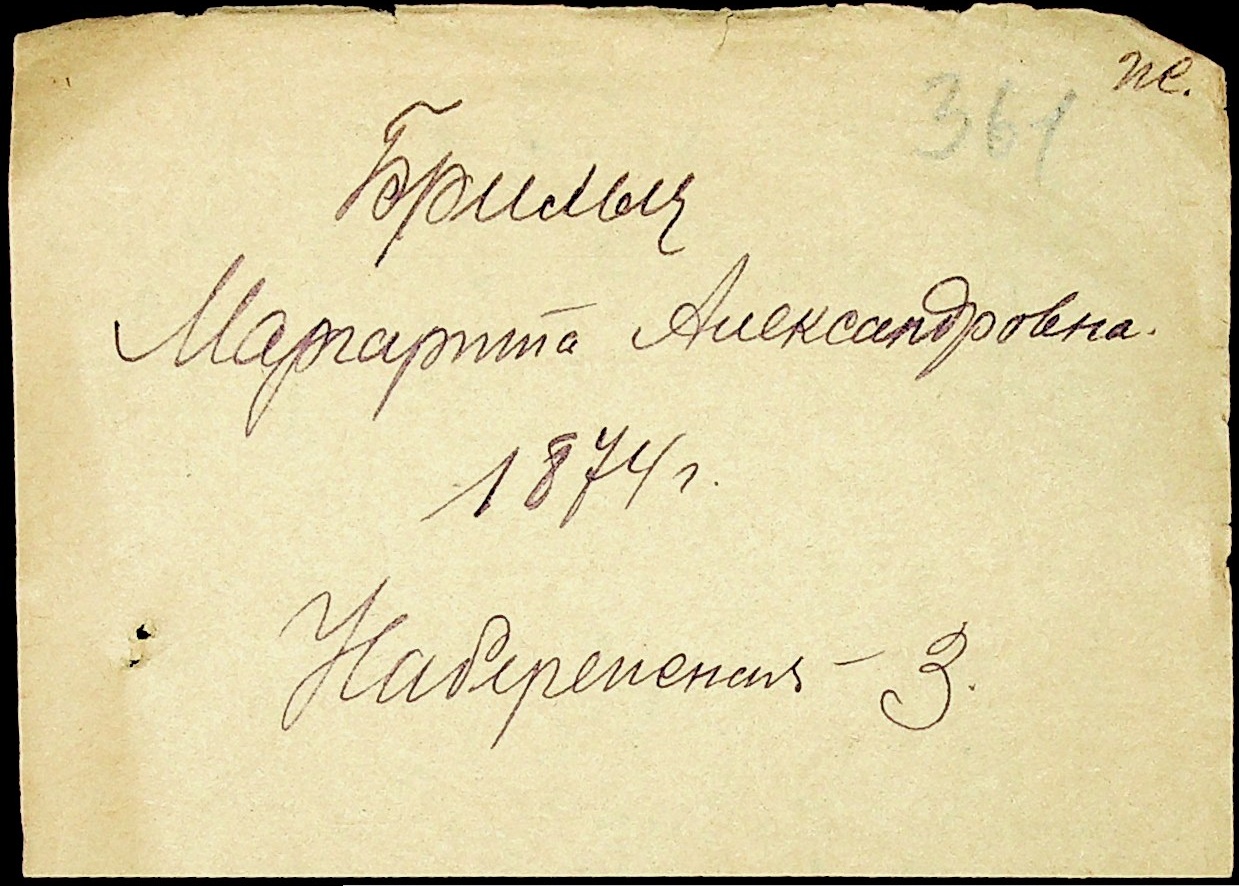 361
Маргарита Александровна.
1874 г.
Набережная – 3.